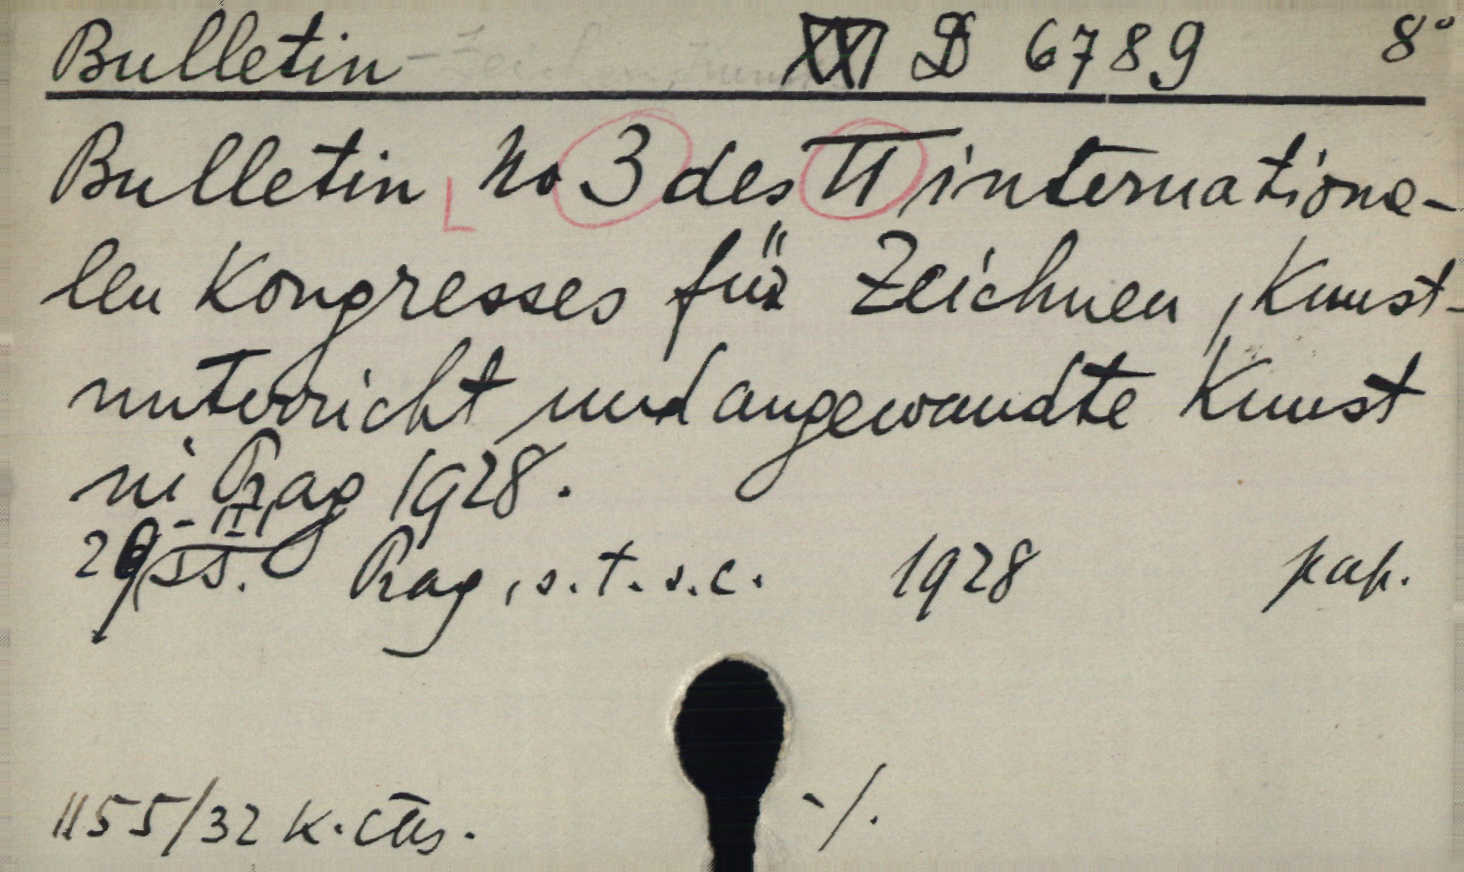 Bulletin XXI D 6789 8°
Bulletin No 3 des VI internationa-
len Kongresses für Zeichnen, Kunst-
unterricht und angewandte Kunst
in Prag 1928.
Prag, s.t. s.c. 1928 pap.
1155/32 K. -/.